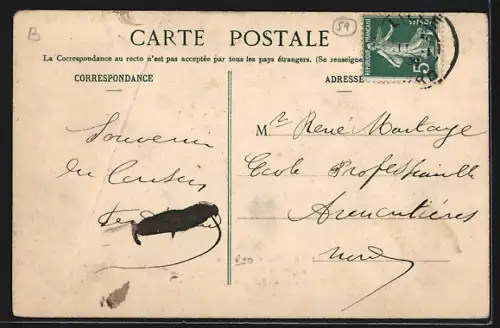 B
59
CARTE POSTALE
La Correspondance au recto n'est pas acceptée par tous les pays étrangers. (Se renseigne
CORRESPONDANCE
ADRESSE
REPUBLIQUE FRANÇAISE
5
Souvenir
du Cousin
Mr René Montaye
Ecole Professionnelle
Armentières
Nord